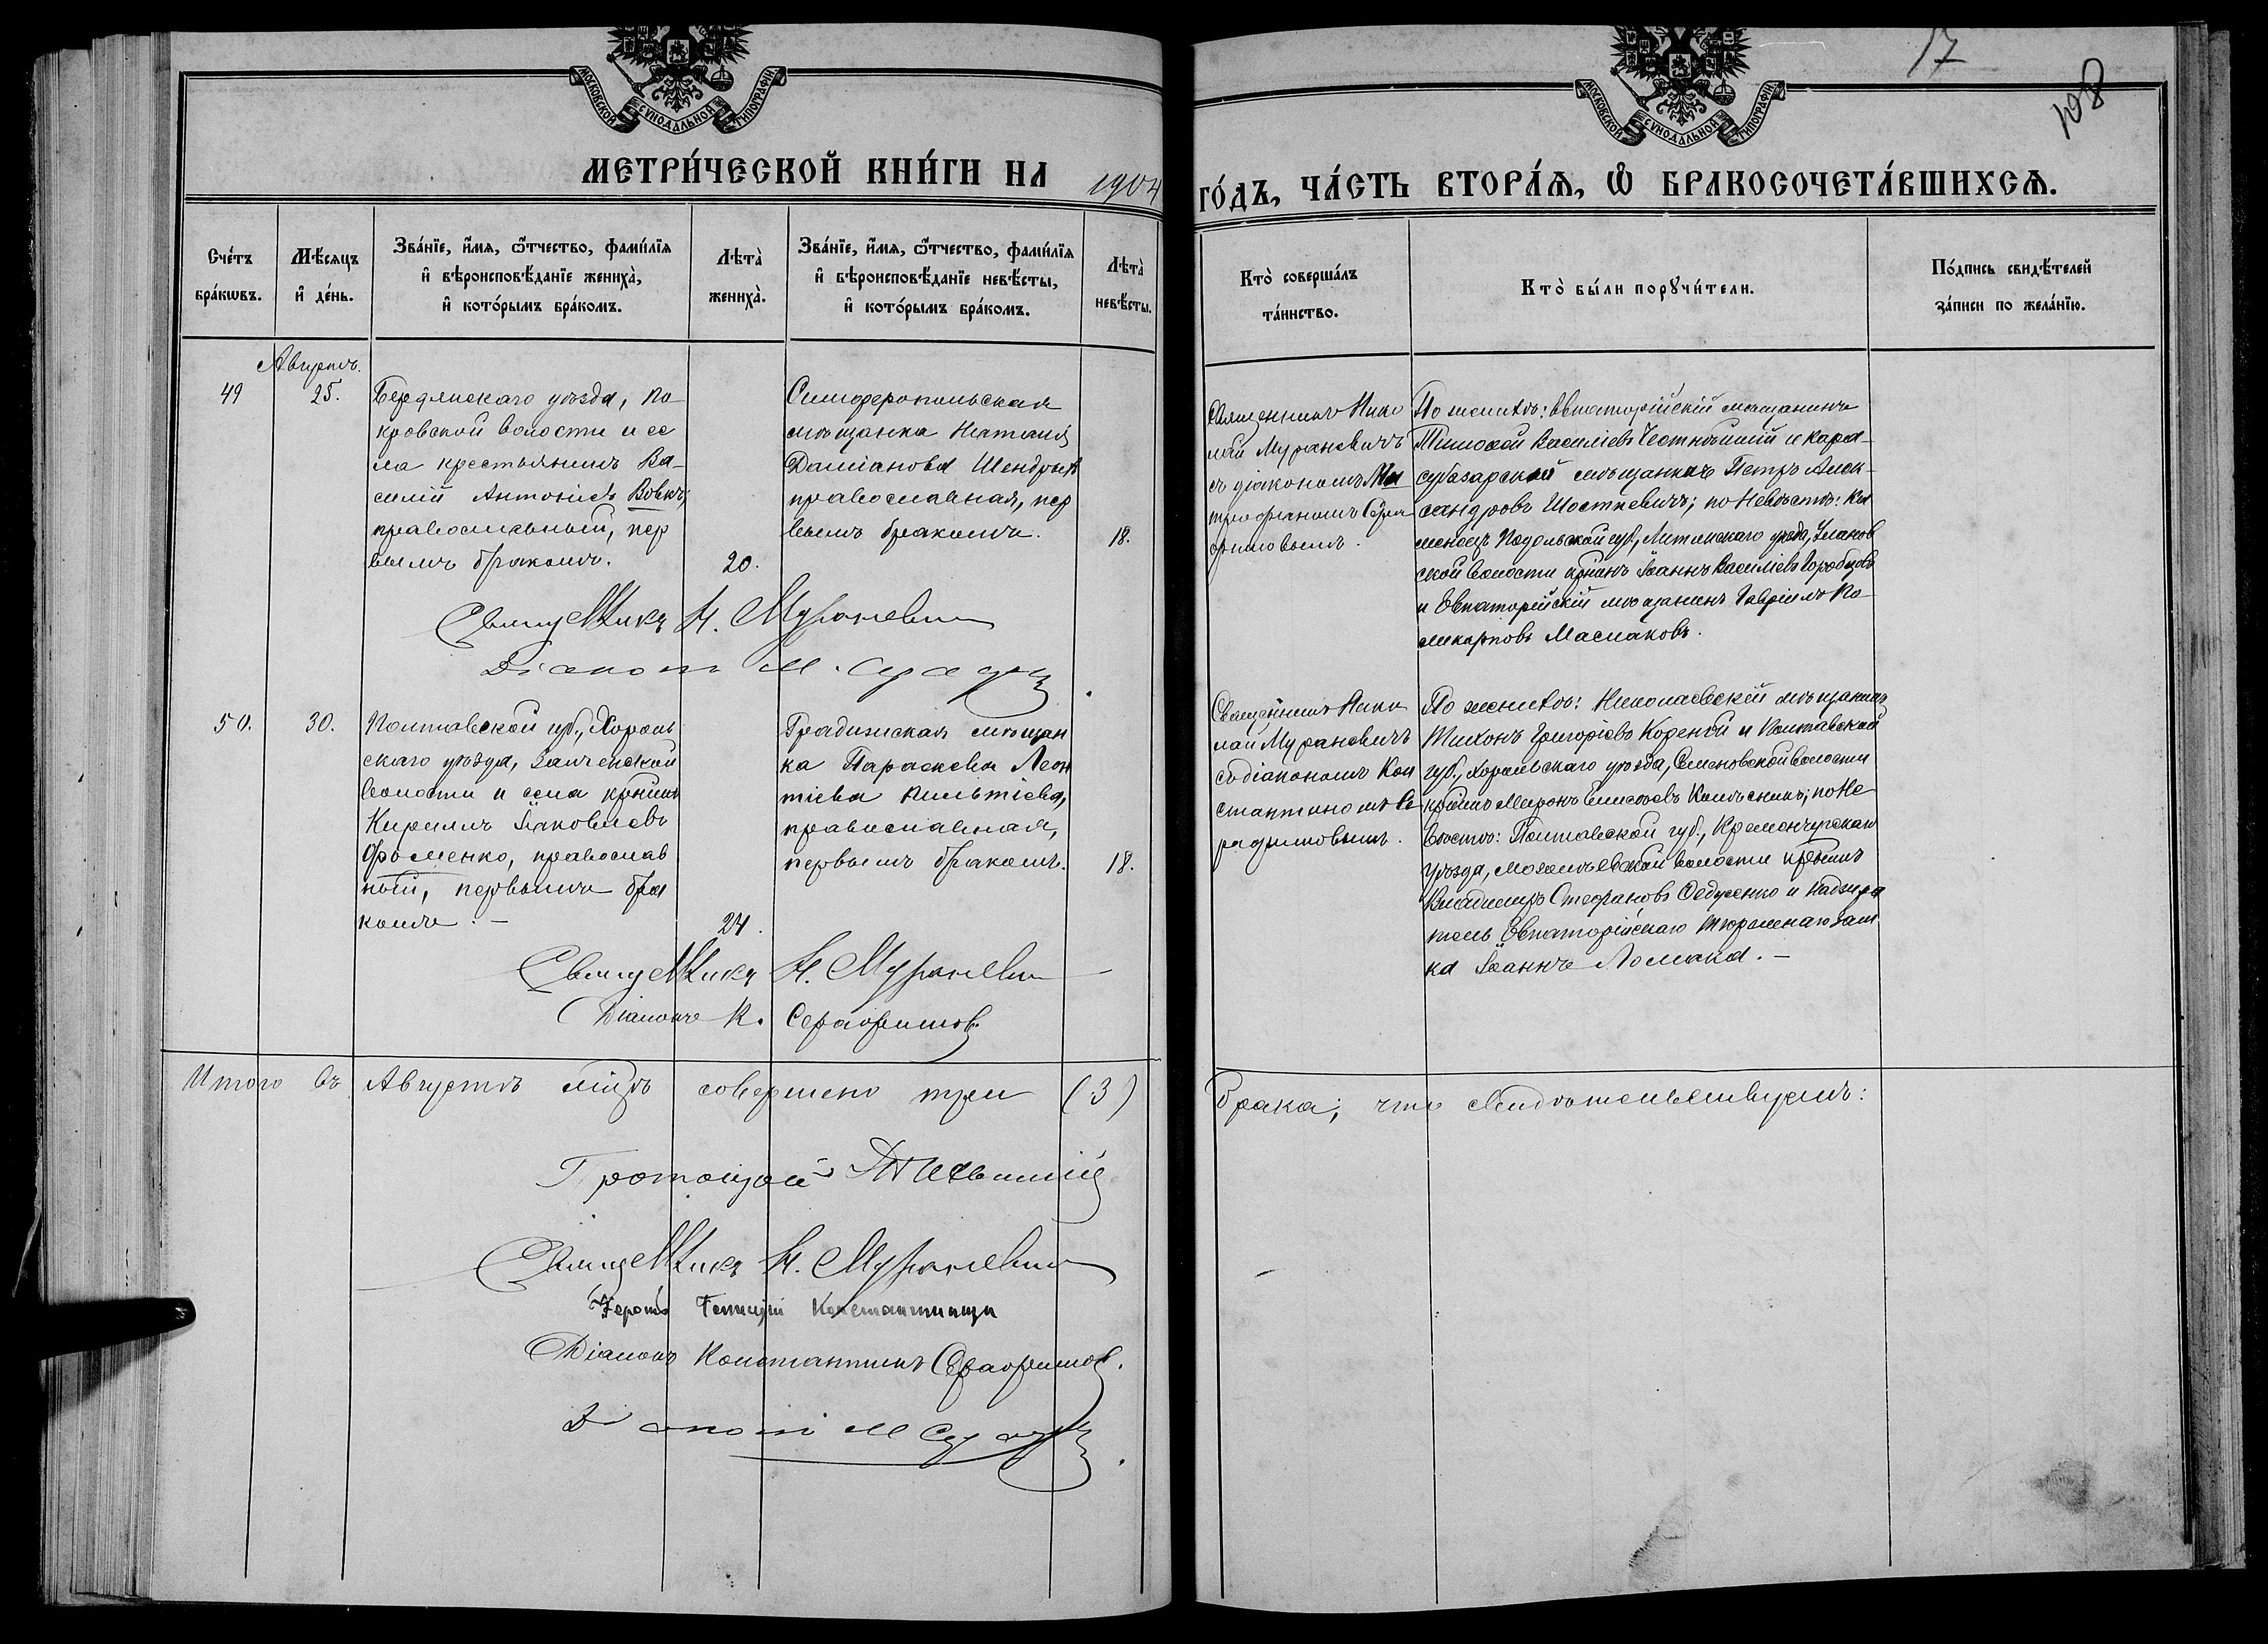 17
108
МОСКОВСКОЙ СѴНОДАЛЬНОЙ ТИПОГРАФІИ.
МОСКОВСКОЙ СѴНОДАЛЬНОЙ ТИПОГРАФІИ.
МЕТРИ́ЧЕСКОЙ КНИ́ГИ НА 1904
ГО́ДЪ, ЧА́СТЬ ВТОРА́Ѧ, Ѽ БРАКОСОЧЕТА́ВШИХСѦ.
Сче́тъ
бра́кѡвъ.
Мѣ́сяцъ
и҆ де́нь.
Зва́нїе, и҆́мѧ, ѻ҆́тчество, фами́лїѧ
и҆ вѣроисповѣ́данїе жениха̀,
и҆ кото́рымъ бра́комъ.
Лѣта̀
жениха̀.
Зва́нїе, и҆́мѧ, ѻ҆́тчество, фами́лїѧ
и҆ вѣроисповѣ́данїе невѣ́сты,
и҆ кото́рымъ бра́комъ.
Лѣта̀
невѣ́сты.
Кто̀ соверша́лъ
та́инство.
Кто̀ бы́ли порꙋчи́тели.
По́дпись свидѣ́телей
за́писи по жела́нїю.
Августъ.
49
25.
Бердянскаго уѣзда, По-
кровской волости и се
ла крестьянинъ Ва-
силій Антоніевъ Вовкъ,
православный, пер
вымъ бракомъ.
20.
Симферопольская
мѣщанка Наталія
Даміанова Шендрыкъ
православная, пер
вымъ бракомъ.
18.
Священникъ Нико
лай Мурановичъ
съ діакономъ Ми
трофаномъ Сера
фимовымъ.
По женихѣ: Евпаторійскій мѣщанинъ
Тимофей Василіевъ Честнѣйшій и Кара-
субазарскій мѣщанинъ Петръ Алек-
сандровъ Шосткевичъ; по Невѣстѣ: Ка
менецъ Подольской губ., Литинскаго уѣзда, Уланов
ской волости кр-нинъ Іоаннъ Василіевъ Горобцовъ
и Евпаторійскій мѣщанинъ Гавріилъ По-
ликарповъ Маслаковъ.
Священникъ Н. Мураневич
Діаконъ М.
50.
30.
Полтавской губ., Хороль
скаго уѣзда,
волости и села кр-нинъ
Кириллъ Іаковлевъ
Фоменко, православ
ный, первымъ бра
комъ. —
24.
Градижская мѣщан
ка Параскева Леон
тіева
православная,
первымъ бракомъ.
18.
Священникъ Нико
лай Мурановичъ
съ діакономъ Кон
стантиномъ Се
рафимовымъ.
По женихѣ: Николаевскій мѣщанинъ
Тихонъ Григоріевъ Коренъй и Полтавской
губ., Хорольскаго уѣзда, Семеновской волости
кр-нинъ Миронъ Елисѣевъ Колѣсникъ; по Не
вѣстѣ: Полтавской губ., Кременчугскаго
уѣзда, волости кр-нинъ
Владимиръ Стефановъ Федченко и Надзира
тель Евпаторійскаго тюремнаго зам
ка Іоаннъ Ломака. —
Священникъ Н. Мураневич
Діаконъ К. Серафимовъ
Итого въ Августѣ м-цѣ совершено три (3)
брака; что свидѣтельствуемъ:
Протоіерей
Священникъ Н. Мураневич
Діаконъ Константинъ Серафимовъ.
Діаконъ М